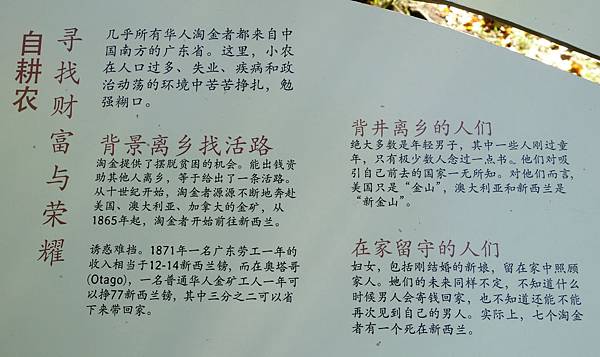 寻找财富与荣耀
自耕农
几乎所有华人淘金者都来自中
国南方的广东省。这里，小农
在人口过多、失业、疾病和政
治动荡的环境中苦苦挣扎，勉
强糊口。
背景离乡找活路
淘金提供了摆脱贫困的机会。能出钱资
助其他人离乡，等于给出了一条活路。
从十世纪开始，淘金者源源不断地奔赴
美国、澳大利亚、加拿大的金矿，从
1865年起，淘金者开始前往新西兰。
诱惑难挡。1871年一名广东劳工一年的
收入相当于12-14新西兰镑，而在奥塔哥
(Otago)，一名普通华人金矿工人一年可
以挣77新西兰镑，其中三分之二可以省
下来带回家。
背井离乡的人们
绝大多数是年轻男子，其中一些人刚过童
年，只有极少数人念过一点书。他们对吸
引自己前去的国家一无所知。对他们而言，
美国只是“金山”，澳大利亚和新西兰是
“新金山”。
在家留守的人们
妇女，包括刚结婚的新娘，留在家中照顾
家人。她们的未来同样不定，不知道什么
时候男人会寄钱回家，也不知道还能不能
再次见到自己的男人。实际上，七个淘金
者有一个死在新西兰。